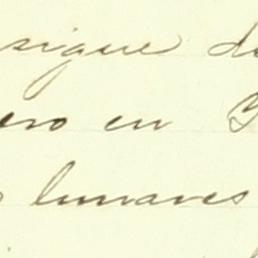 sigue de
ero en
lunares